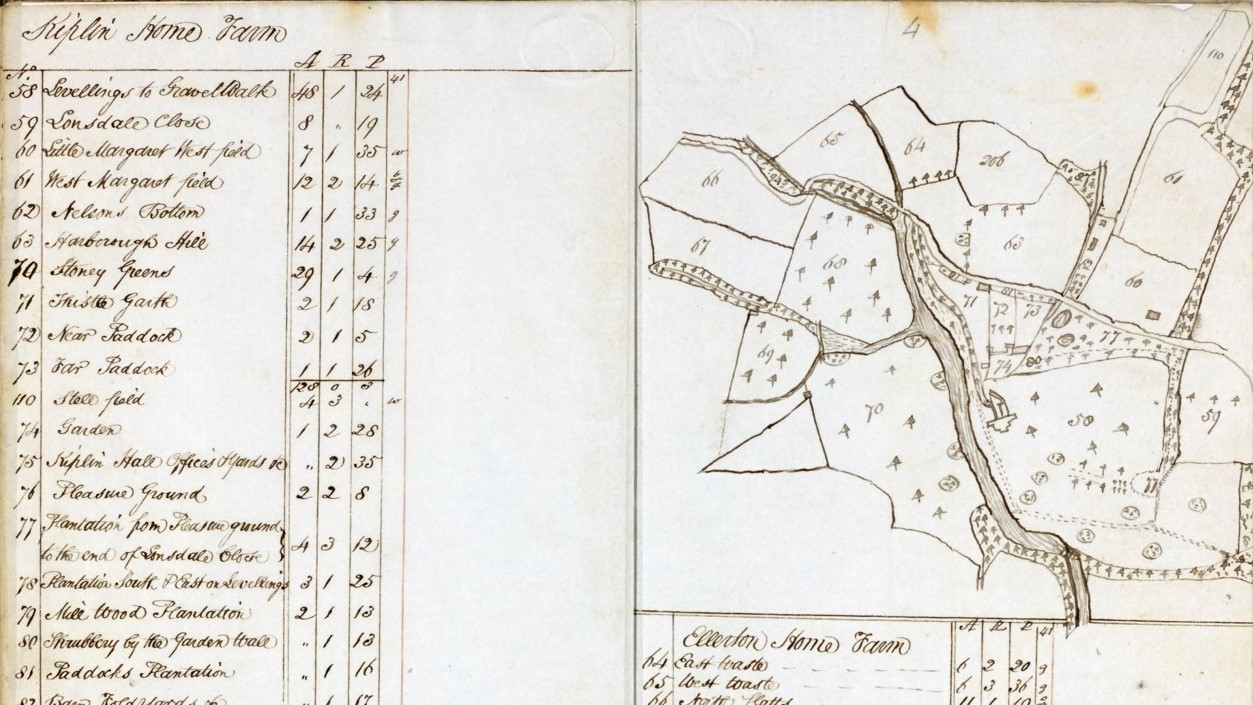 Kiplin Home Farm
A R P
No 41
58 Levellings to Gravel Walk 48 1 24
59 Lonsdale Close 8 " 19
60 Little Margaret West field 7 1 35 w
61 West Margaret field 12 2 14
62 Nelsons Bottom 1 1 33 g
63 Harborough Hill 14 2 25 g
70 Stoney Greens 29 1 4 g
71 Thistle Garth 2 1 18
72 Near Paddock 2 1 5
73 Far Paddock 1 1 26
128 0 3
110 Stell field 4 3 . w
74 Garden 1 2 28
75 Kiplin Hall Offices Yards &c " 2 35
76 Pleasure Ground 2 2 8
77 Plantation from Pleasure ground
to the end of Lonsdale Close 4 3 12
78 Plantation South & East on Levellings 3 1 25
79 Mill Wood Plantation 2 1 13
80 Shrubbery by the Garden Wall " 1 13
81 Paddocks Plantation " 1 16
82 Barn Fold Yards &c " 1 17
4
110
65
64
206
66
61
67
63
68
60
71
72
73
77
69
74
70
58
59
77
A R P 41
Ellerton Home Farm
64 East Waste 6 2 20 g
65 West Waste 6 3 36 g
66 North Flatts 11 1 19